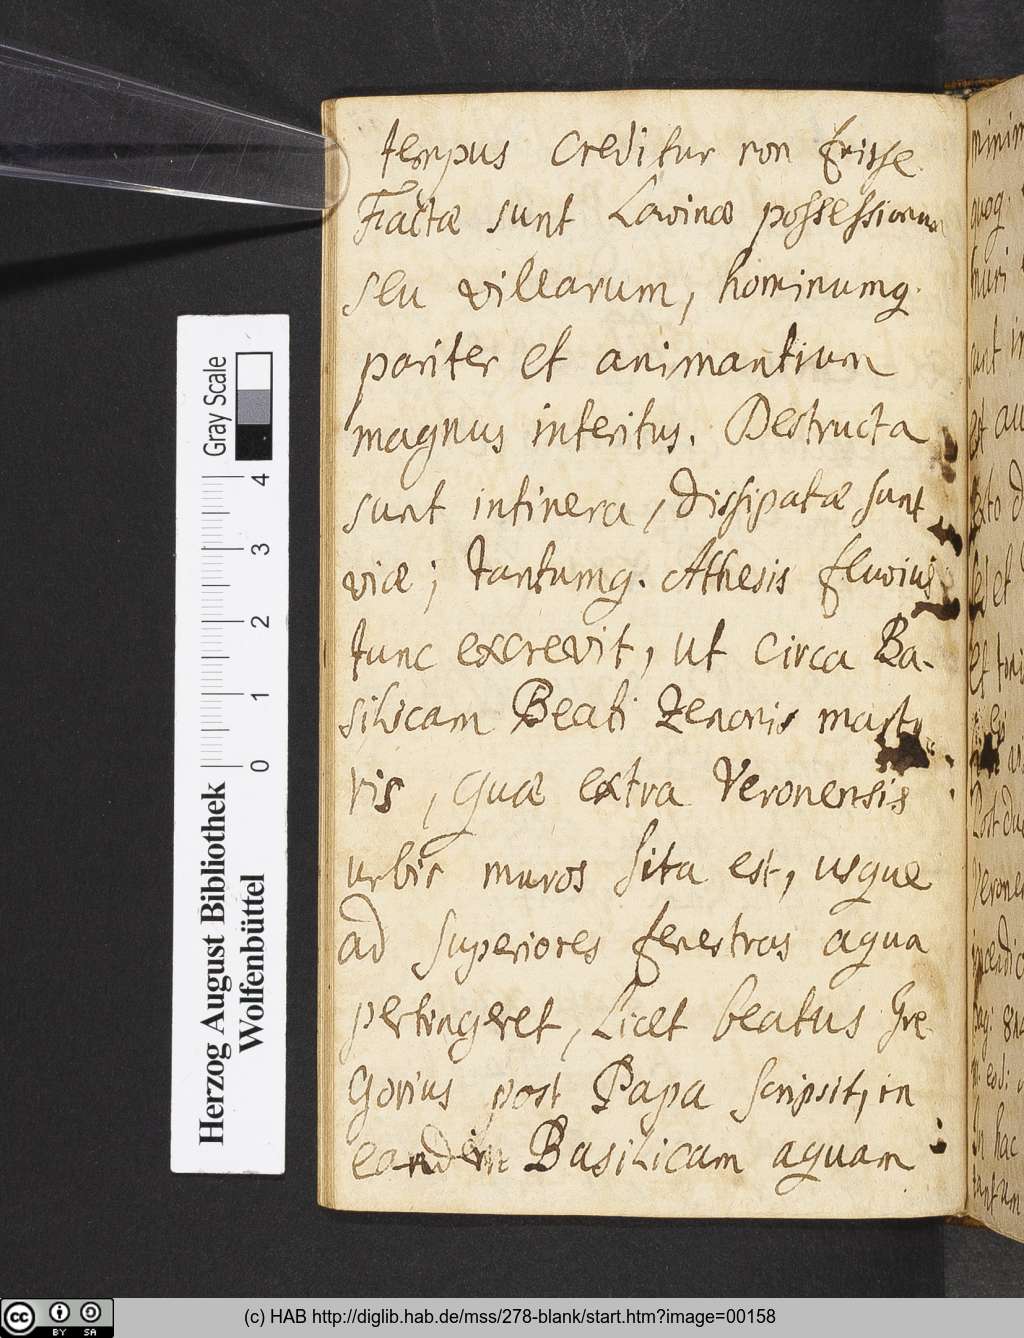 tempus creditur non fuisse.
Factæ sunt Lavinæ possessionum
seu villarum, hominumq.
pariter et animantium
magnus interitus. Destructa
sunt intinera, dissipatæ sunt
viæ; tantumq. Athesis fluvius
tunc excrevit, ut circa Ba-
silicam Beati Zenonis marty
ris, quæ extra Veronensis
urbis muros sita est, usque
ad superiores fenestras aqua
pertingeret, Licet beatus Gre-
gorius post Papa scripsit, in
eandem Basilicam aquam
Gray Scale
0 1 2 3 4
Herzog August Bibliothek
Wolfenbüttel
cc BY SA
(c) HAB http://diglib.hab.de/mss/278-blank/start.htm?image=00158